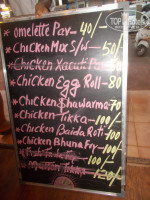 TOP
* omelette Pav - 40/-
* Chicken Mix S/w - 50/-
* Chicken Xacuti Pav
* Chicken Egg Roll - 80
* Chicken Shawarma - 70
* Chicken Tikka - 100/-
* Chicken Baida Roti - 100
* Chicken Bhuna Fry - 100/-
100/-
* Mutton 120/-